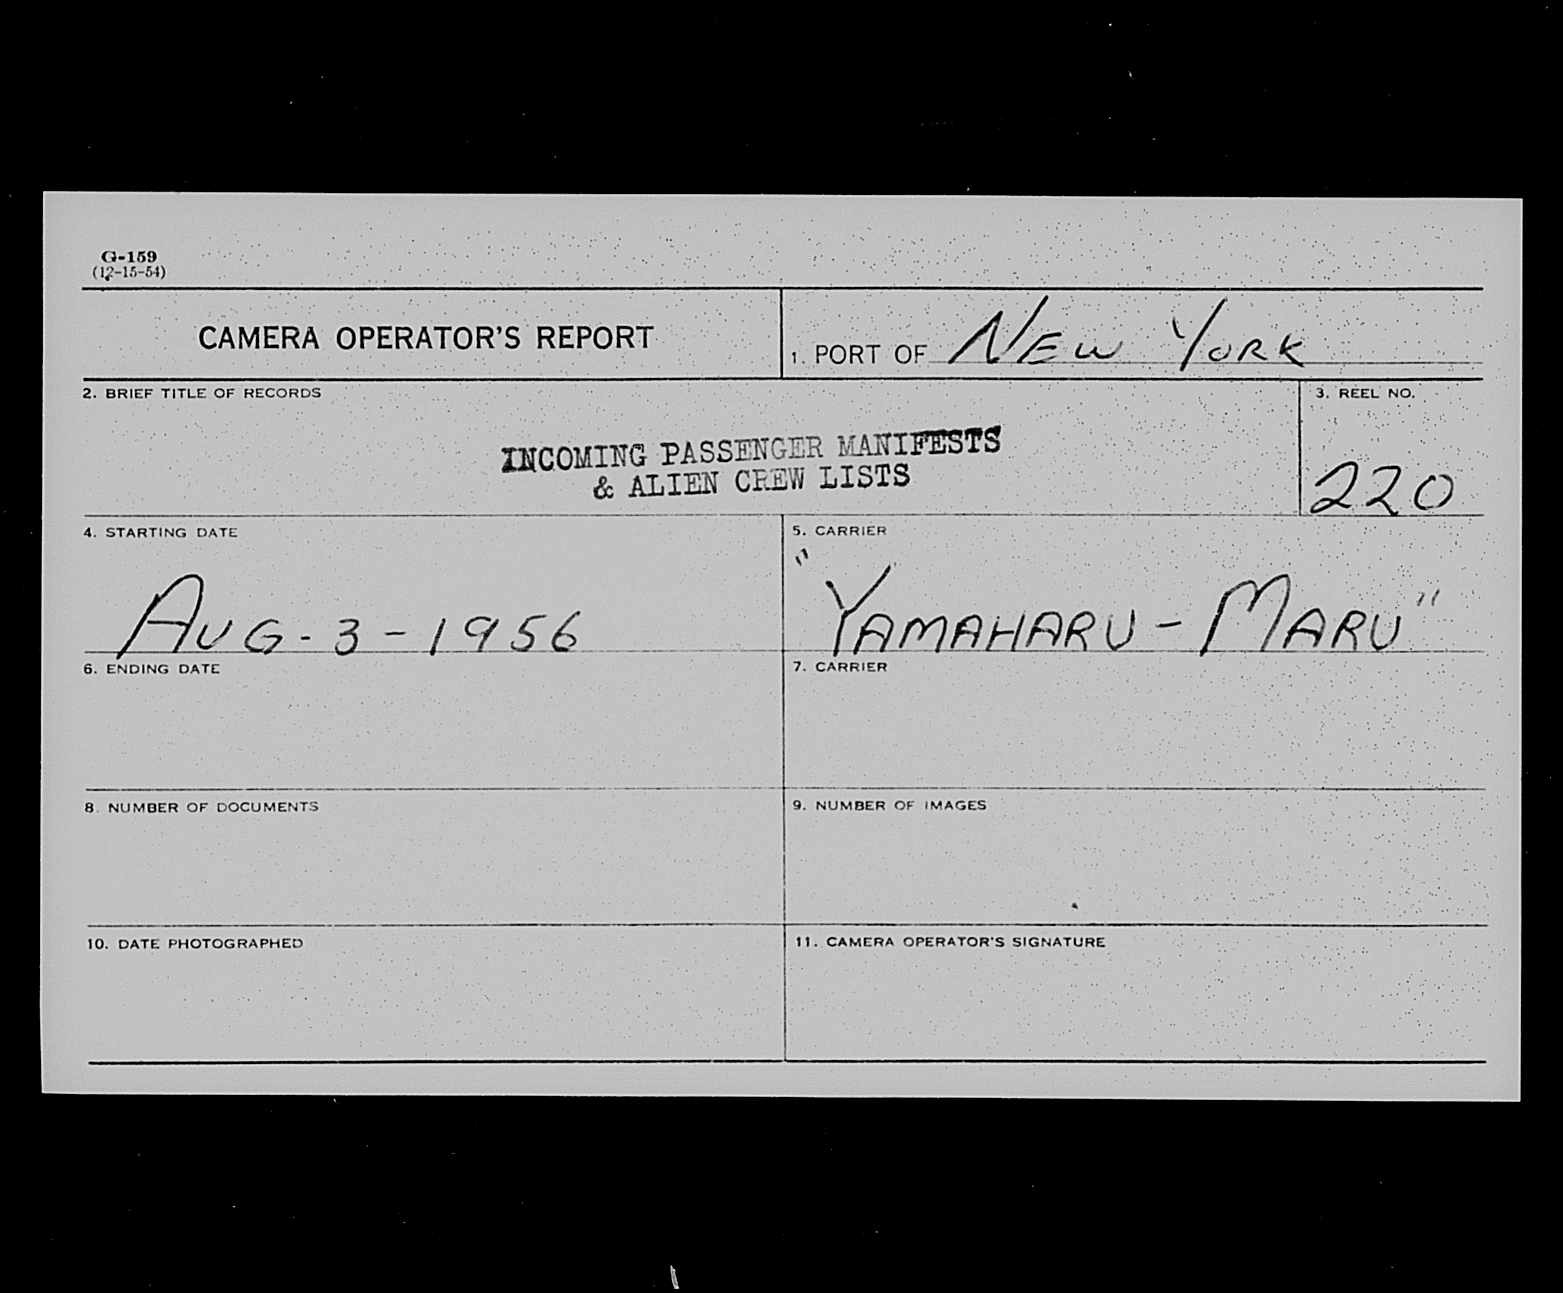 G-159
(12-15-54)
CAMERA OPERATOR'S REPORT
1. PORT OF NEW YORK
2. BRIEF TITLE OF RECORDS
3. REEL NO.
INCOMING PASSENGER MANIFESTS
& ALIEN CREW LISTS
220
4. STARTING DATE
5. CARRIER
AUG-3-1956
"YAMAHARU-MARU"
6. ENDING DATE
7. CARRIER
8. NUMBER OF DOCUMENTS
9. NUMBER OF IMAGES
10. DATE PHOTOGRAPHED
11. CAMERA OPERATOR'S SIGNATURE